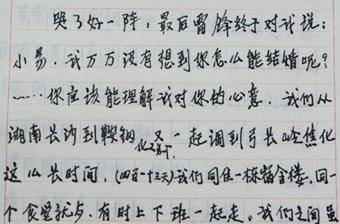 哭了好一阵，最后雷锋终于对我说：
小易，我万万没有想到你怎么能结婚呢？
……你应该能理解我对你的心意，我们从
湖南长沙到鞍钢化工厂，又一起调到弓长岭焦化
这么长时间，(四百一十三天)我们同住一栋宿舍楼，同一
个食堂就步、有时上下班一起走。我们之间虽